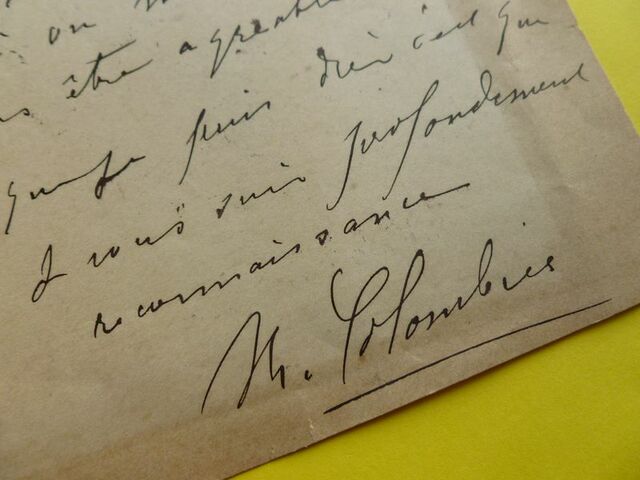 on
être agréable
que je puis dire c'est que
je vous suis profondement
reconnaissance
M. Colombier